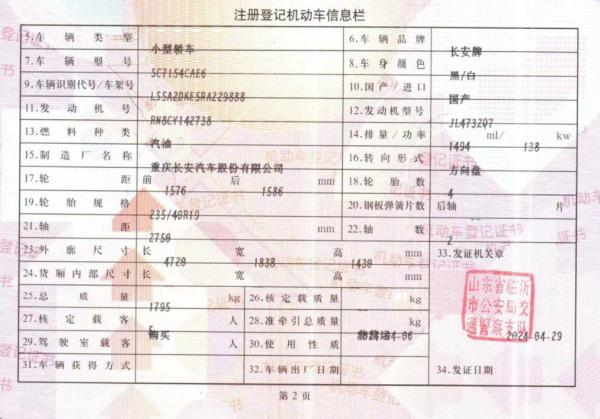 注册登记机动车信息栏
5.车辆类型 小型轿车 6.车辆品牌 长安牌
7.车辆型号 SC7154CAE6 8.车身颜色 黑/白
9.车辆识别代号/车架号 LS5A2DKE5RA229888 10.国产/进口 国产
11.发动机号 RN8CY142738 12.发动机型号 JL473ZQ7
13.燃料种类 汽油 14.排量/功率 1494 ml/ 138 kw
15.制造厂名称 重庆长安汽车股份有限公司 16.转向形式 方向盘
17.轮距 前 1576 后 1586 mm 18.轮胎数 4
19.轮胎规格 235/40R19 20.钢板弹簧片数 后轴 片
21.轴距 2750 mm 22.轴数 2
23.外廓尺寸 长 4720 宽 1838 高 1430 mm 33.发证机关章
24.货厢内部尺寸 长 宽 高 mm
25.总质量 1795 kg 26.核定载质量 kg
27.核定载客 5 人 28.准牵引总质量 kg
29.驾驶室载客 人 30.使用性质
31.车辆获得方式 购买 32.车辆出厂日期 34.发证日期 2024-04-29
山东省临沂
市公安局交
通警察支队
第2页